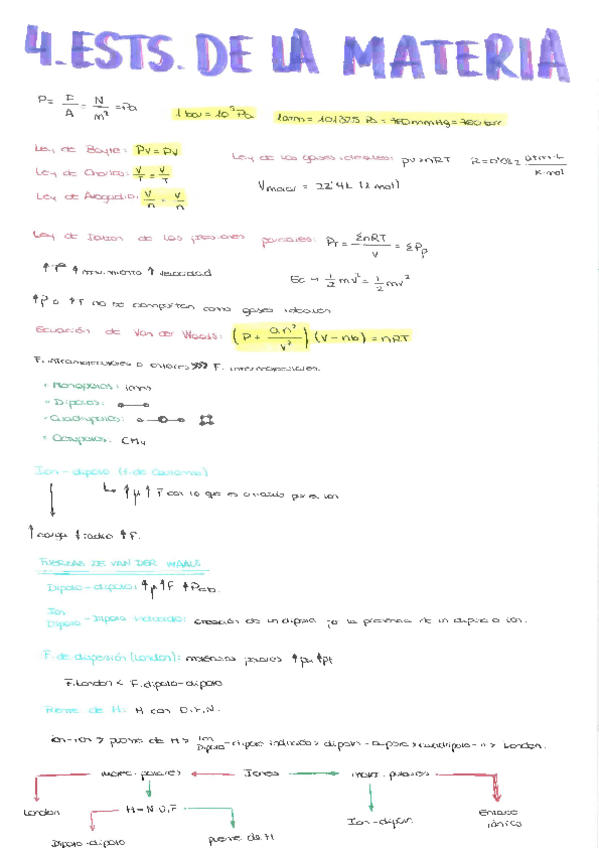 4.ESTS. DE LA MATERIA
P= F/A = N/m² = Pa
1 bar = 10⁵ Pa
1atm = 101325 Pa = 760mmHg = 760 torr
Ley de Boyle: PV = PV
Ley de los gases ideales: PV=nRT
R=0'082 atm·L/K·mol
Ley de Charles: V/T = V/T
Vmolar = 22'4L (1 mol)
Ley de Avogadro: V/n = V/n
Ley de Dalton de las presiones parciales: PT = ΣnRT/V = ΣPp
↑T ↑ movimiento ↑ velocidad
Ec → 1/2 mv² = 1/2 mv²
↑P o ↓T no se comportan como gases ideales
Ecuación de Van der Waals: (P + an²/V²) (V-nb) = nRT
F. intramoleculares o enlaces >>> F. intermoleculares.
• Monopolos: iones
• Dipolos:
• Cuadrupolos:
• Octupolos: CH4
Ion-dipolo (F. de Coulomb)
↑μ ↑F con lo que es atraido por el ion
↑carga ↓radio ↑F.
FUERZAS DE VAN DER WAALS
Dipolo-dipolo: ↑μ ↑F ↑Peb.
Ion
Dipolo-Dipolo inducido: creación de un dipolo por la presencia de un dipolo o ion.
F. de dispersión (London): moléculas ↑pm ↑pt
F. London < F. dipolo-dipolo
Puente de H: H con O, F, N.
ion-ion > puente de H > Ion/Dipolo-dipolo inducido > dipolo-dipolo > cuadrupolo > London.
molec. polares
Iones
molec. polares
London
H-N, O, F
Ion-dipolo
Enlace iónico
Dipolo-dipolo
puente de H